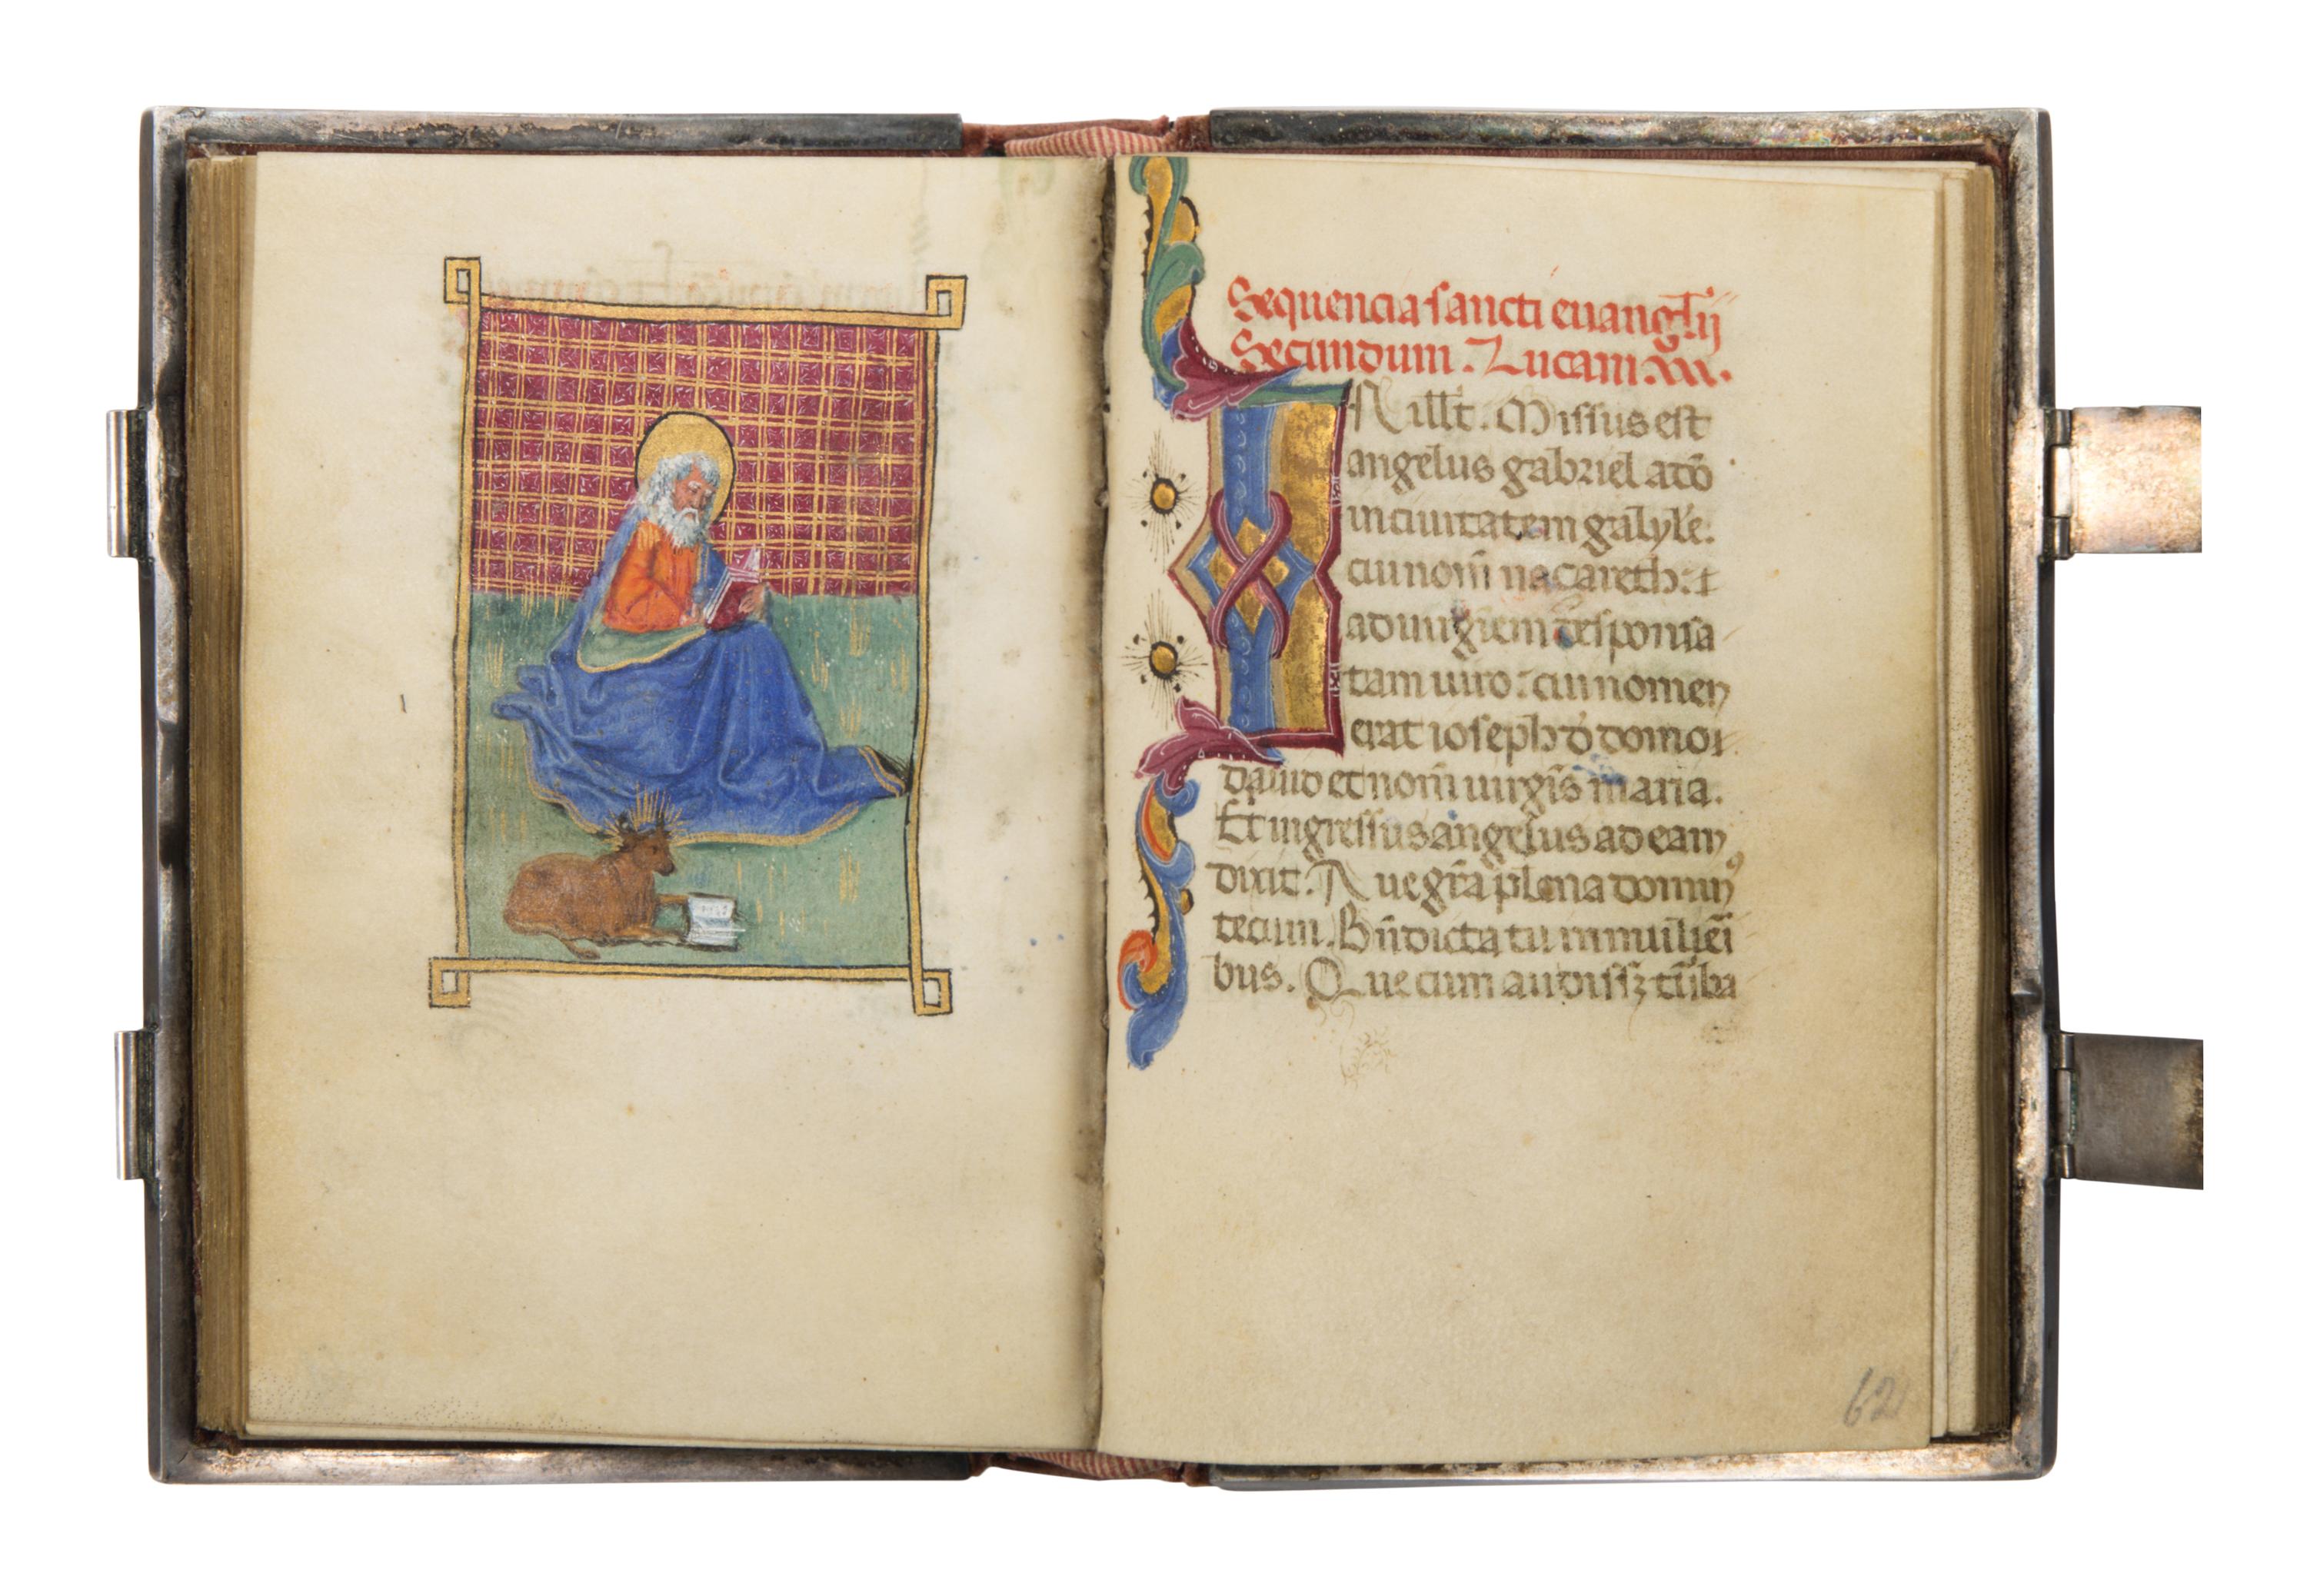 Sequencia sancti euanglij
Secundum. Lucam.
IN illt. Missus est
angelus gabriel a dō
in ciuitatem galyle.
cui nom̄ nazareth. et
ad uirgiem desponsa
tam uiro: cui nomen
erat ioseph d̄ domo
dauid et nom̄ uirgīs maria.
Et ingressus angelus ad eam
dixit. Aue grā plena domin9
tecum. Bn̄dicta tu in mulieri
bus. Que cum audissꝫ
62